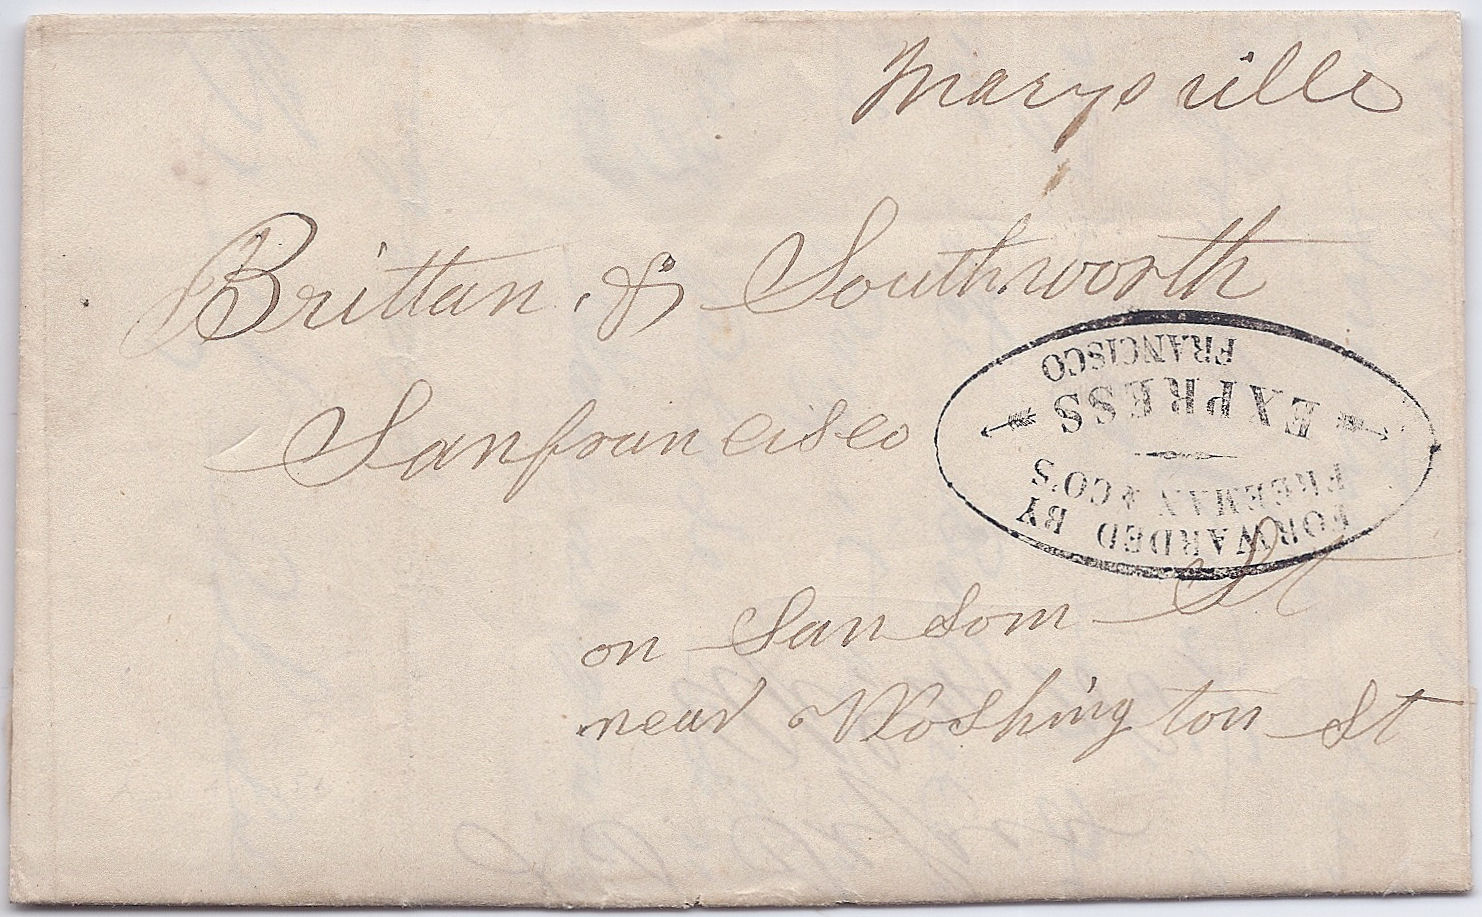 Marysville
Brittan & Southworth
Sanfrancisco
FORWARDED BY
FREEMAN & CO'S
EXPRESS
FRANCISCO
on San som St
near Woshington St